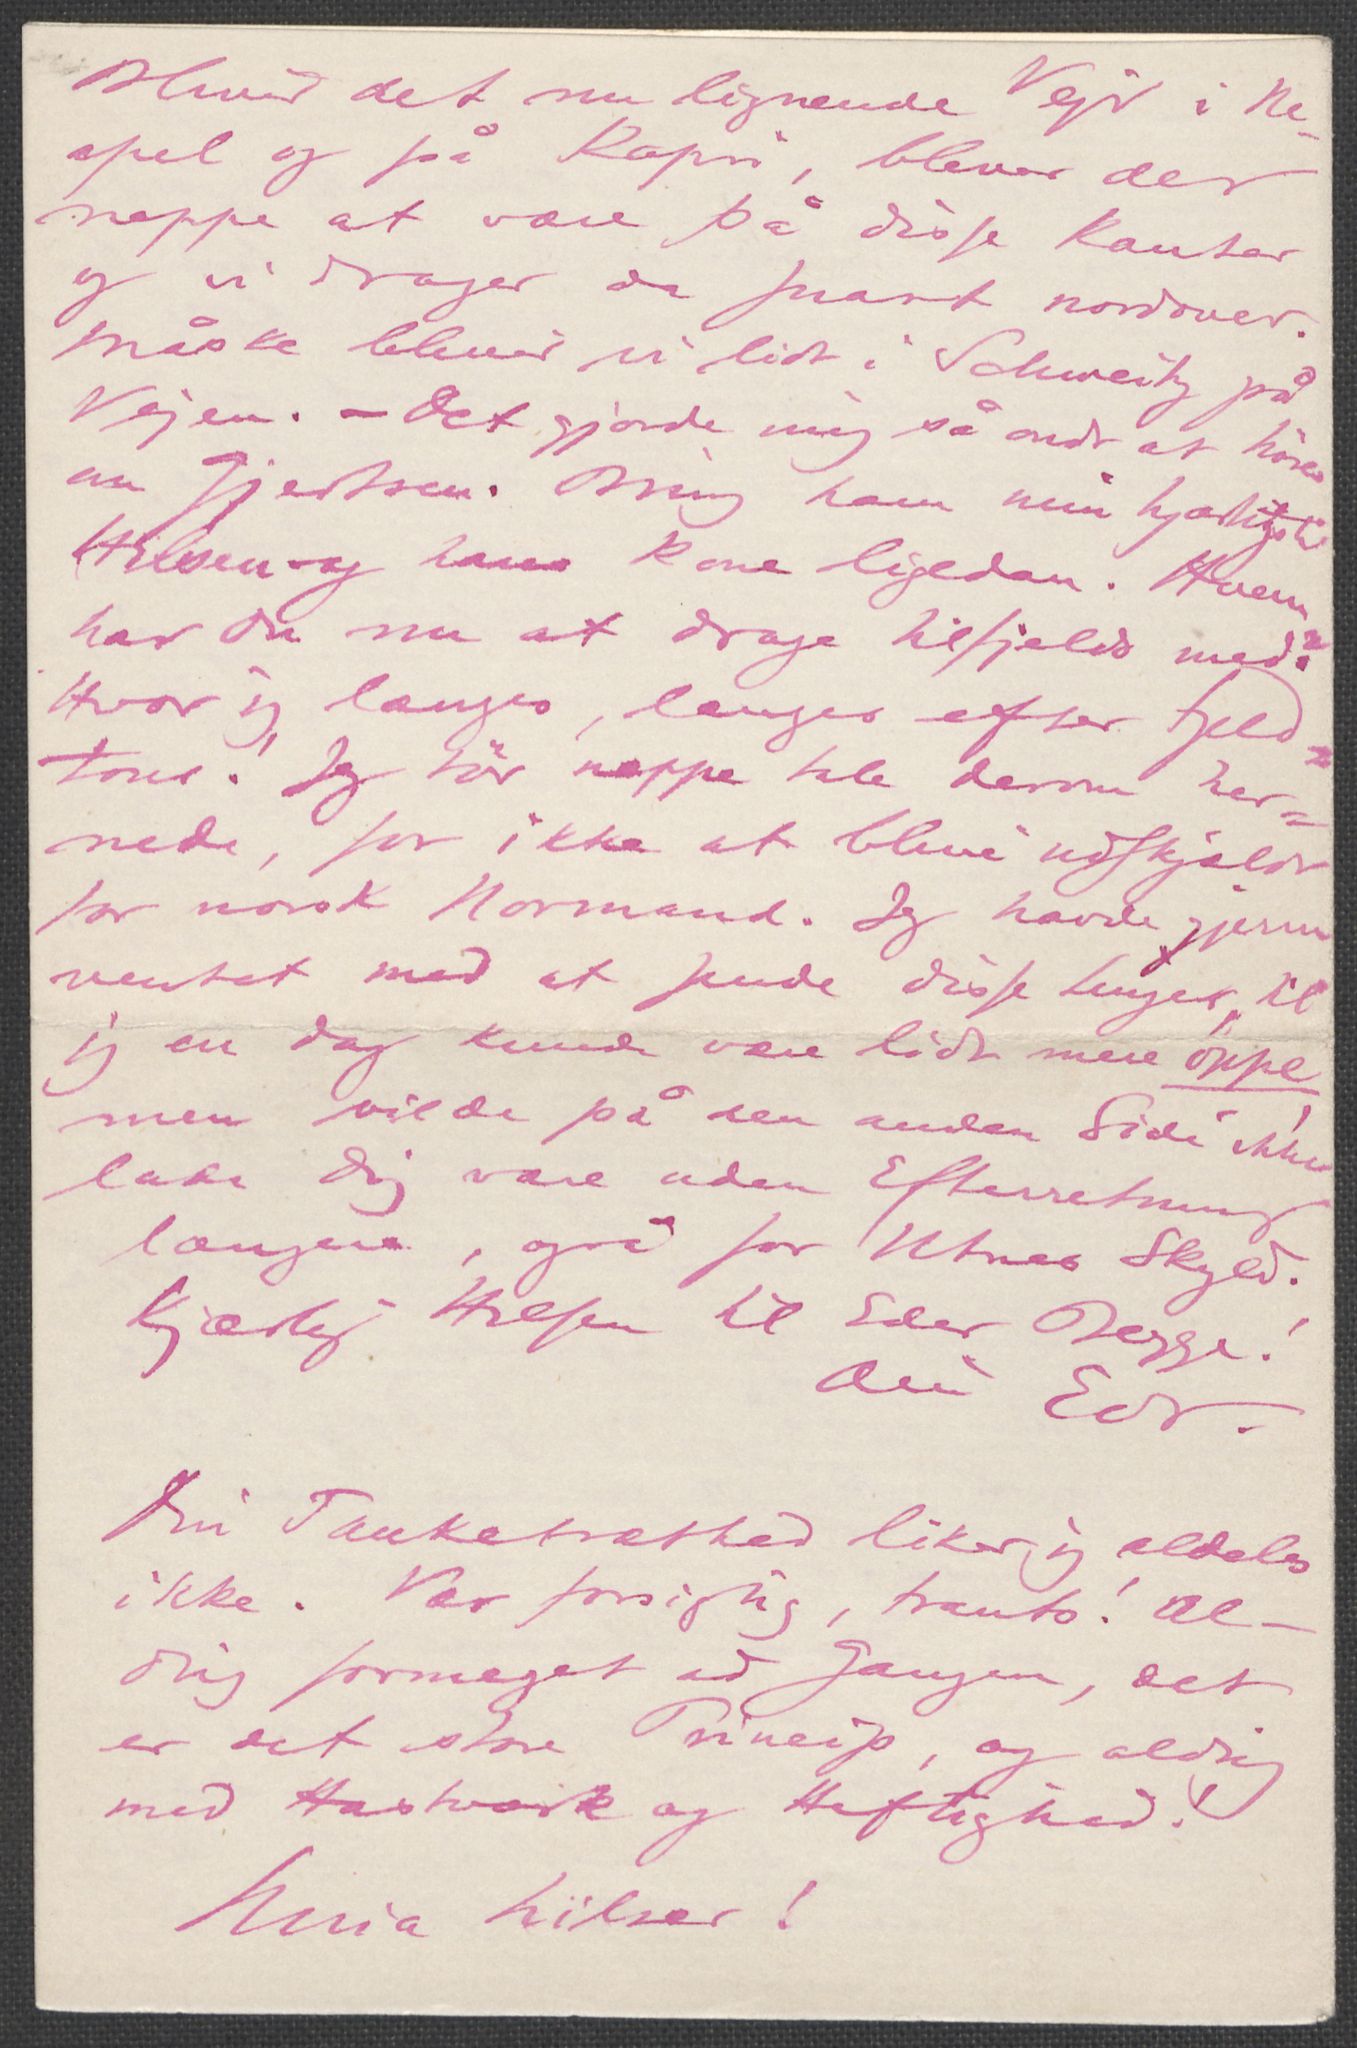 Bliver det nu lignende Vejr i Ne-
apel og på Kapri, bliver det
neppe at være på disse Kanter
og vi drager da snart nordover.
Måske bliver vi lidt i Schweitz på
Vejen. – Det gjorde mig så ondt at høre
om Gjertsen. Bring ham min hjerteligste
Hilsen og hans Kone ligedan. Hvem
har du nu at drage tilfjelds med?
Hvor jeg længes, længes efter Fjeld-
toner! Jeg tör neppe tale derom her-
nede, for ikke at blive udskjældt
for norsk Normand. Jeg havde gjerne
ventet med at sende disse Linjer, til
jeg en dag kunde være lidt mere oppe
men vilde på den anden Side ikke
lade dig være uden Efterretning
længere, også for Ninas Skyld.
Kjærlig Hilsen til Eder Begge!
Din Edv.
Din Tanketræthed liker jeg aldeles
ikke. Vær forsigtig, tranto! Al-
drig formeget ad Gangen, det
er det store Princip, og aldrig
med Hastværk og Heftighed!
Nina hilser!